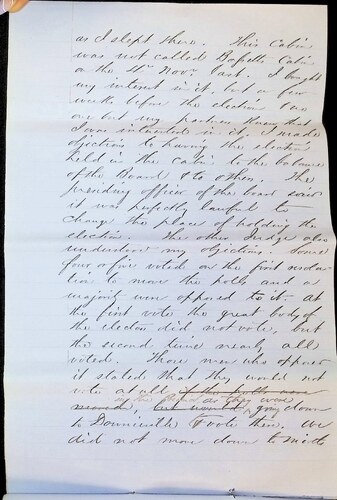 as I slept there. This Cabin
was not called Bassetts Cabin
on the 4th Nov. last. I bought
my interest in it, but a few
weeks before the election. No
one but my partners knew that
I was interested in it. I made
objections to having the election
held in the Cabin to the balance
of the Board & to others. The
presiding officer of the board said
it was perfectly lawful to
change the place of holding the
election. The other Judge also
understood my objections. Some
four or five voted on the first
to move the polls and a
majority were opposed to it. At
the first vote the great body of
the electors did not vote, but
the second time nearly all
voted. Those men who opposed
it stated that they would not
vote at all if the polls were
moved, but would go down
to Downieville & vote there. We
did not move down to